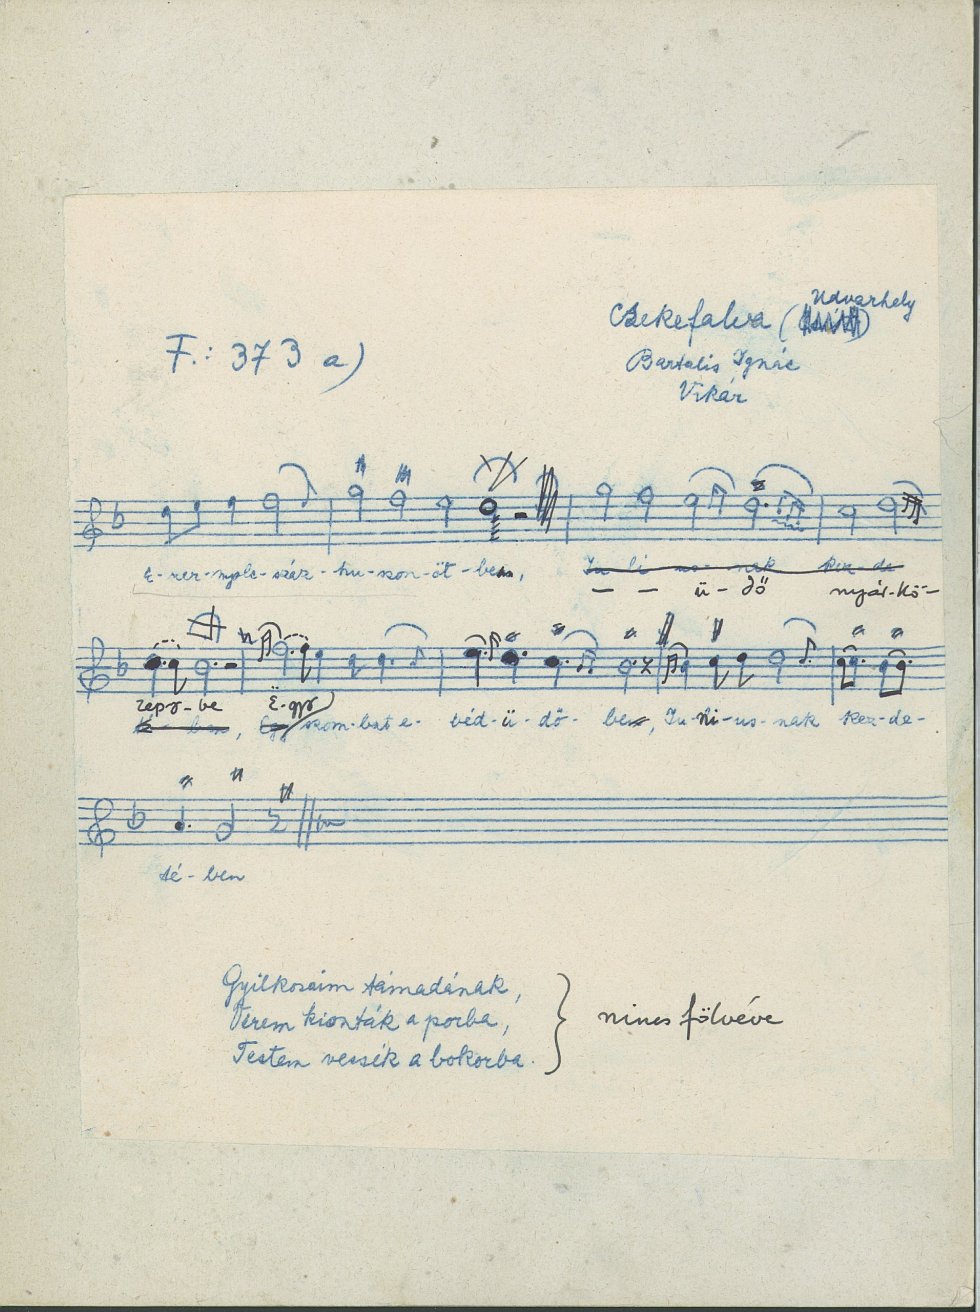 Udvarhely
F.: 373 a)
Csekefalva ( )
Bartalis Ignác
Vikár
E-zer-nyolc-száz-hu-szon-öt-be, Ju-li-us-nak kez-de
— — ü-dő nyár-kö-
zepө-be Ë-gyө
, szom-bat e-béd-ü-dő-be, Ju-ni-us-nak kez-de-
té-ben
Gyilkosaim támadának,
Vérem kionták a porba,
Testem vessék a bokorba.
nincs fölvéve